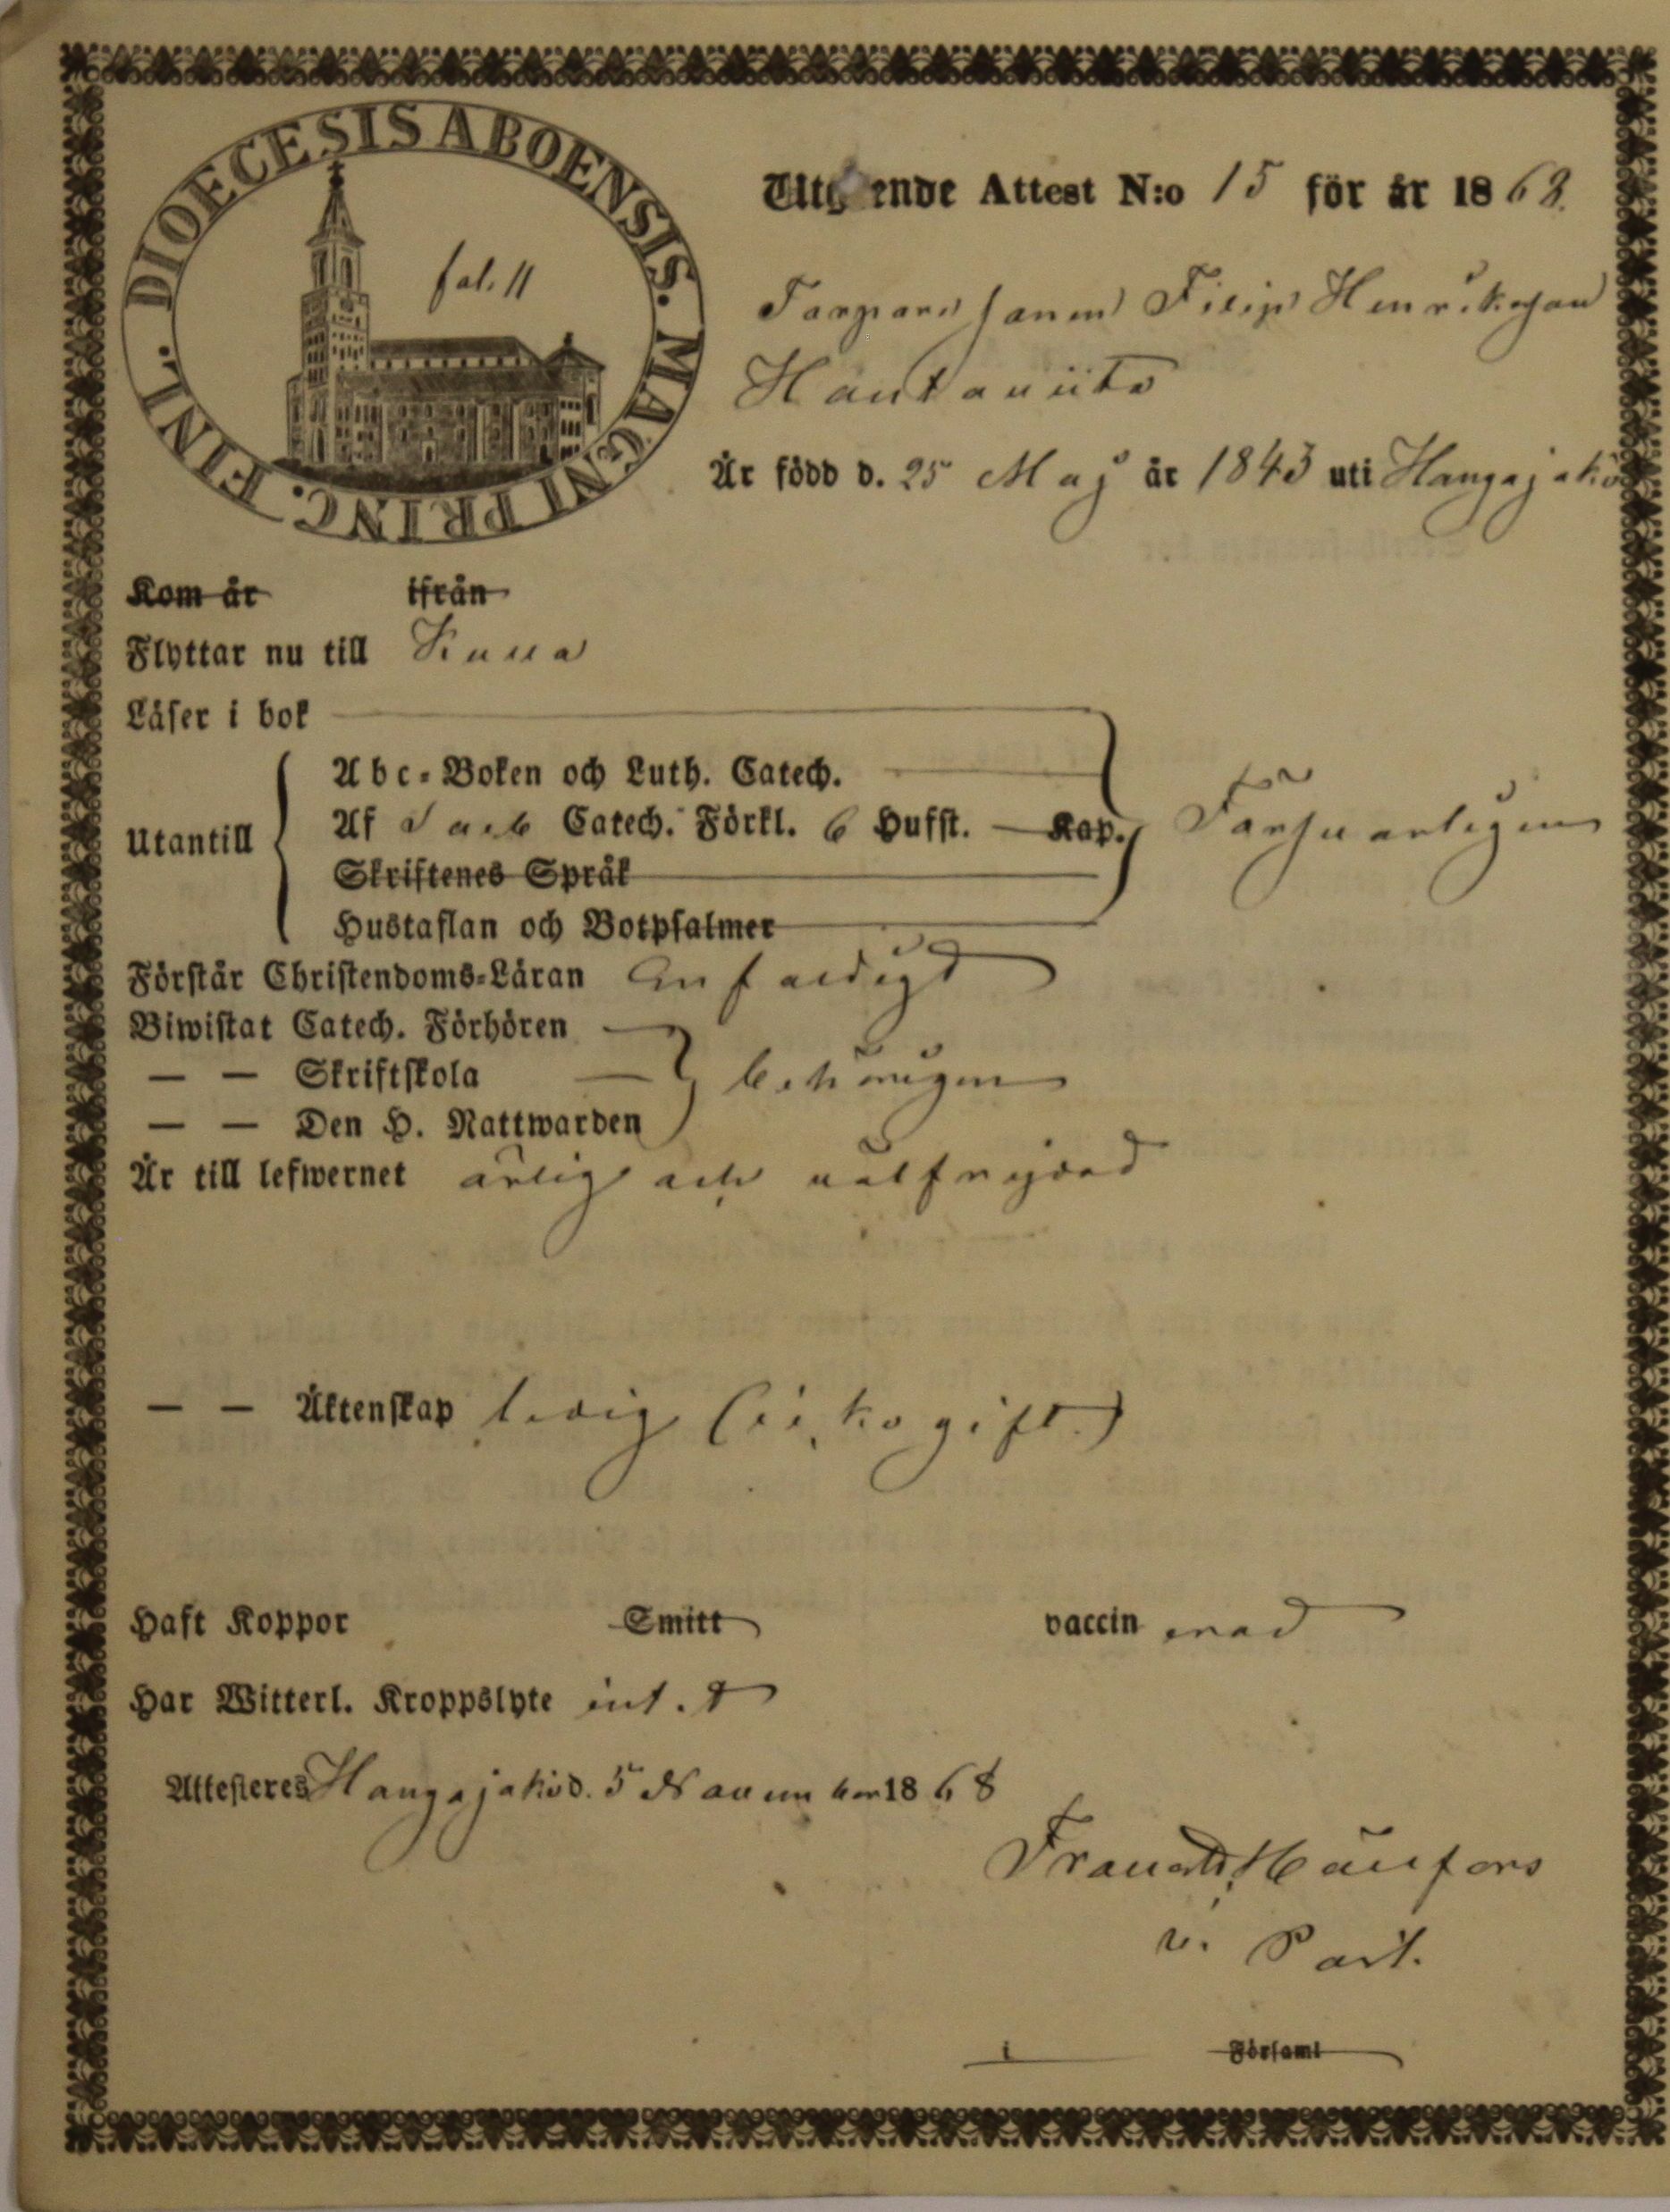 DIOECESIS ABOENSIS. MAGNI PRINC. FINL.
fol. 11
Utgående Attest N:o 15 för år 1868.
Torparesonen Filip Henriksson
Hautaviita
Är född d. 25 Maj år 1843 uti Hongajoki
Kom år ifrån
Flyttar nu till
Läser i bok
Utantill
Abc-Boken och Luth. Catech.
Af Sveb Catech. Förkl. 6 Hufst. Kap.
Försvarligen
Skriftenes Språk
Hustaflan och Botpsalmer
Förstår Christendoms-Läran Enfaldigt
Biwistat Catech. Förhören
— — Skriftskola behörigen
— — Den H. Nattwarden
Är till lefwernet ärlig och välfrejdad
— — Äktenskap ledig (icke gift.)
Haft Koppor Smitt vaccinerad
Har Witterl. Kroppslyte intet
Attesteres Hongajoki d. 5 November 1868
v. Past.
i Församl